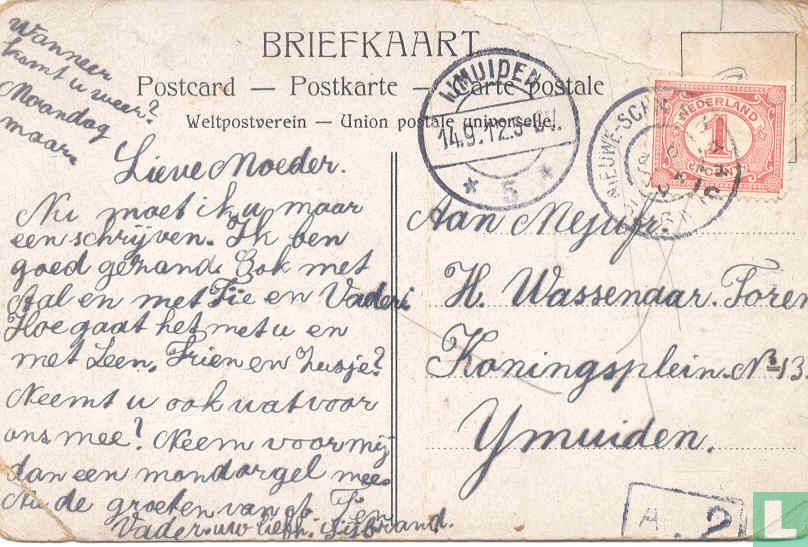 Wanneer
komt u weer?
Maandag
maar.
BRIEFKAART
Postcard — Postkarte — Carte postale
Weltpostverein — Union postale universelle.
IJMUIDEN
14.9.12.
* 5 *
NIEUWE-SCHA
NEDERLAND
1
CENT
Lieve Moeder.
Nu moet ik u maar
een schrijven. Ik ben
goed gezond. Ook met
Aal en met Fie en Vader
Hoe gaat het met u en
met Leen, Trien en Zusje?
Neemt u ook wat voor
ons mee? Neem voor mij
dan een mondorgel mee
Nu de groeten van
Vader. uw liefh.
Aan Mejufr.
H. Wassenaar. Toren
Koningsplein. No 13.
Ymuiden.
A 2
LastDodo